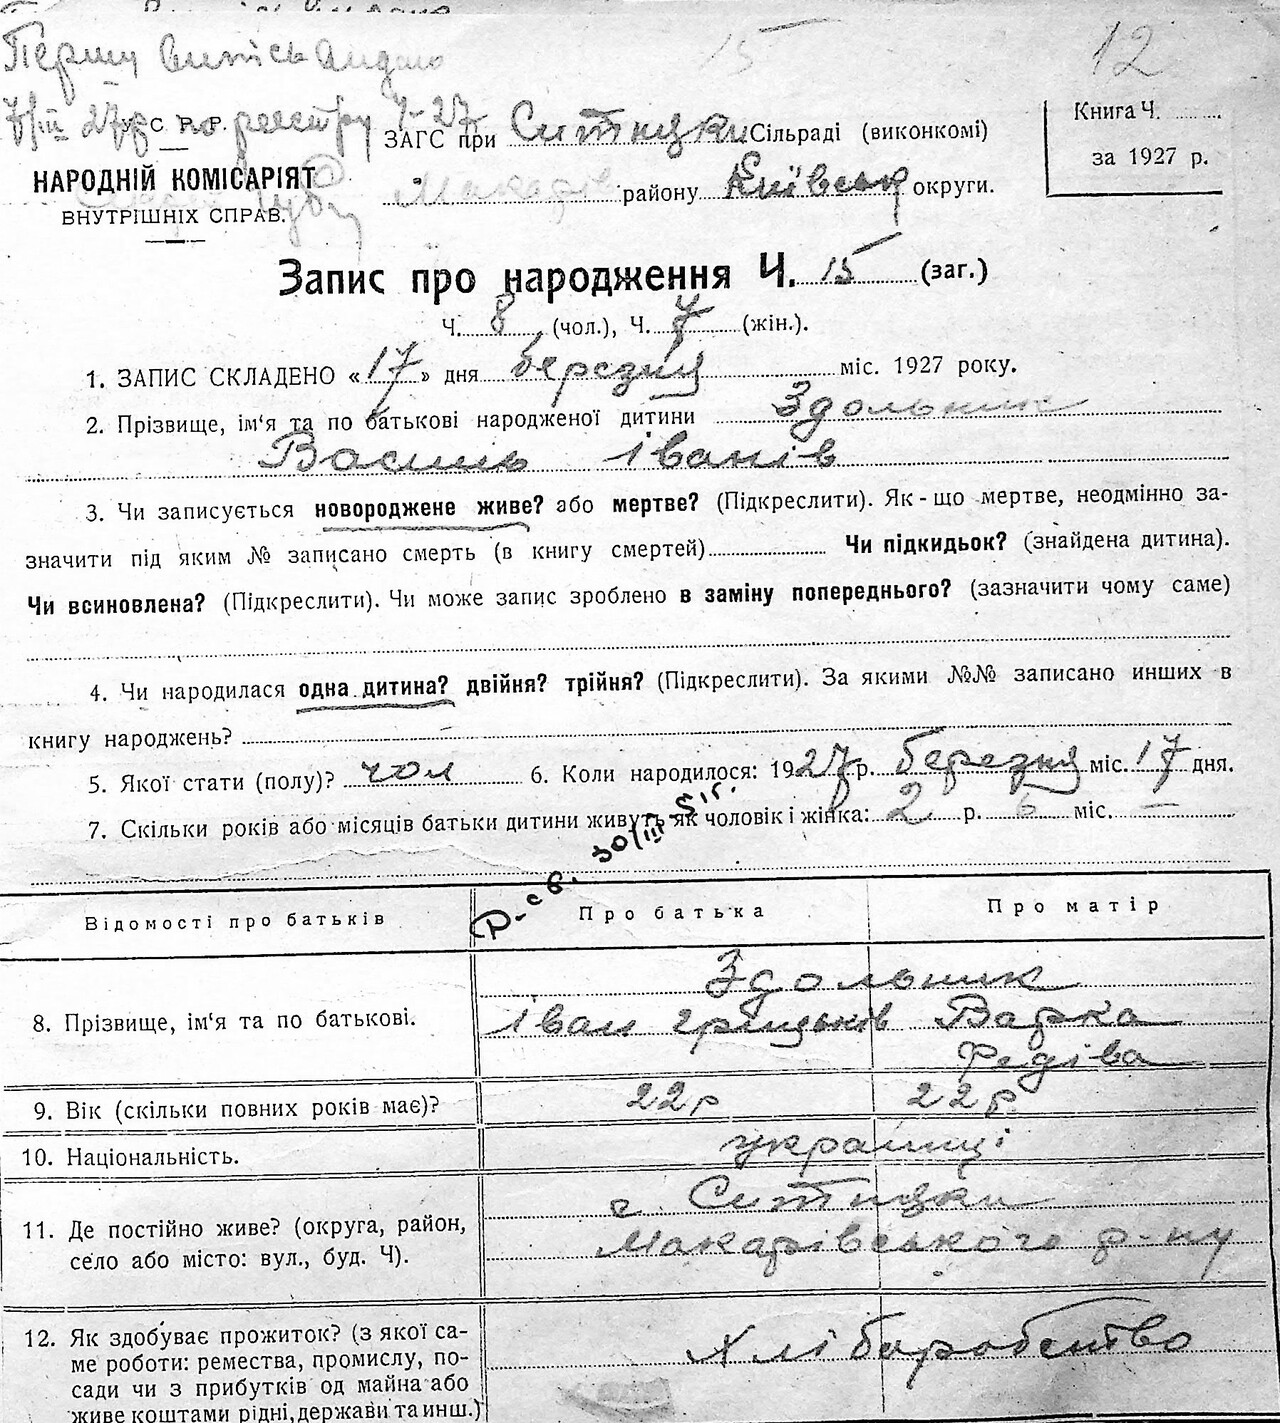 Першу випись видано
7/III 27 р по реєстру 7-27
У С Р. Р.
НАРОДНІЙ КОМІСАРІЯТ
ВНУТРІШНІХ СПРАВ.
ЗАГС при Ситняки Сільраді (виконкомі)
Макарів району Київськ округи.
15
12
Книга Ч.
за 1927 р.
Запис про народження Ч. 15 (заг.)
Ч. 8 (чол.), Ч. 7 (жін.).
1. ЗАПИС СКЛАДЕНО «17» дня березня міс. 1927 року.
2. Прізвище, ім'я та по батькові народженої дитини Здольник
Василь Іванів
3. Чи записується новороджене живе? або мертве? (Підкреслити). Як-що мертве, неодмінно за-
значити під яким № записано смерть (в книгу смертей) Чи підкидьок? (знайдена дитина).
Чи всиновлена? (Підкреслити). Чи може запис зроблено в заміну попереднього? (зазначити чому саме)
4. Чи народилася одна дитина? двійня? трійня? (Підкреслити). За якими №№ записано инших в
книгу народжень? —
5. Якої стати (полу)? чол 6. Коли народилося: 1927 р. березня міс. 17 дня.
7. Скільки років або місяців батьки дитини живуть як чоловік і жінка: 2 р. 6 міс. —
Р-с в. 30/III-51г.
Відомості про батьків Про батька Про матір
8. Прізвище, ім'я та по батькові. Здольник
Іван Грицьків Варка
Федіва
9. Вік (скільки повних років має)? 22 р 22 р.
10. Національність. українці
11. Де постійно живе? (округа, район,
село або місто: вул., буд. Ч).
с. Ситняки
Макарівського р-ну
12. Як здобуває прожиток? (з якої са-
ме роботи: ремества, промислу, по-
сади чи з прибутків од майна або
живе коштами рідні, держави та инш.)
Хліборобство